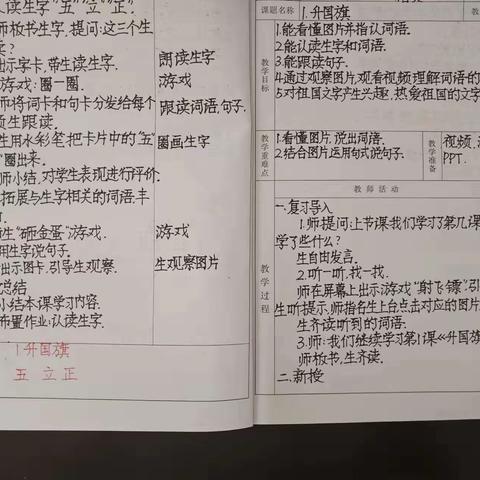 读生字“五”“立”“正”.
师板书生字,提问:这三个生
读?
出示字卡,带生读生字.
朗读生字
游戏:圈一圈.
游戏
师将词卡和句卡分发给每个
质生跟读.
跟读词语,句子.
生用水彩笔把卡片中的“五”
圈画生字
”圈出来.
师小结,对学生表现进行评价.
拓展与生字相关的词语,丰
生“砸金蛋”游戏.
游戏
用生字说句子.
出示图卡,引导生观察.
生观察图片
总结
小结本课学习内容.
布置作业:认读生字.
1.升国旗
五 立 正
课题名称
1.升国旗
教学目标
1.能看懂图片并指认词语.
2.能认读生字和词语.
3.能跟读句子.
4.通过观察图片,观看视频理解词语的
5.对祖国文字产生兴趣,热爱祖国的文字
教学重难点
1.看懂图片,说出词语.
2.结合图片运用句式说句子.
教学准备
视频,
PPT.
教师活动
教学过程
一.复习导入
1.师提问:上节课我们学习了第几课
学了些什么?
生自由发言.
2.听一听,找一找.
师在屏幕上出示游戏“射飞镖”,引
生听提示,师指名生上台点击对应的图片
生齐读听到的词语.
3.师:我们继续学习第1课《升国旗
师板书,生齐读.
二.新授